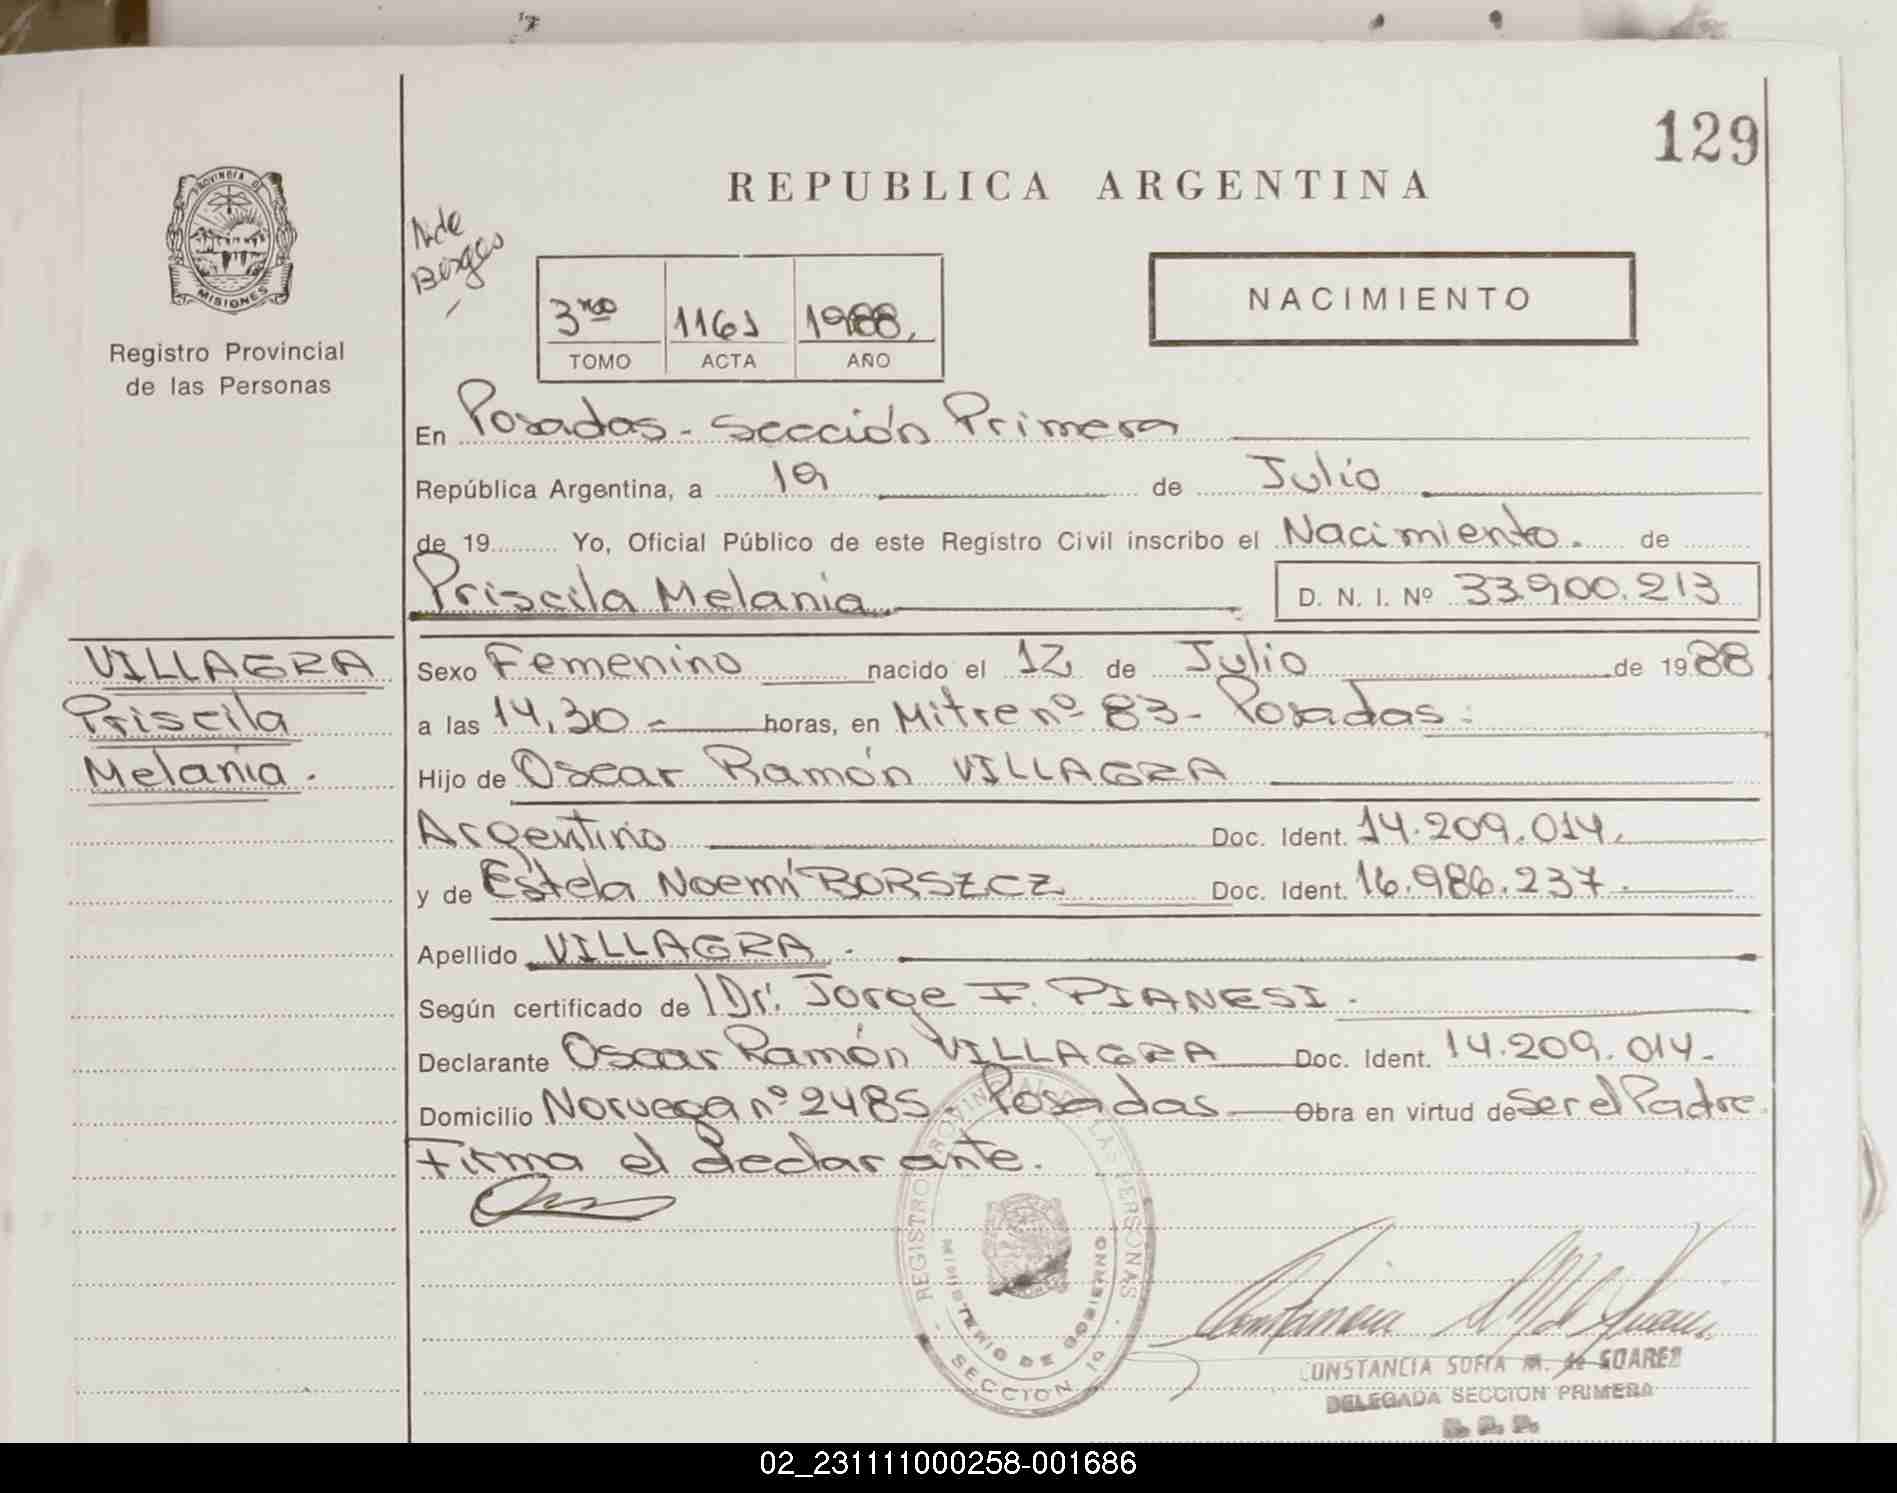 129
REPUBLICA ARGENTINA
PROVINCIA DE
MISIONES
Registro Provincial
de las Personas
N. de
Borges
3ro 1161 1988.
TOMO ACTA AÑO
NACIMIENTO
En Posadas - Sección Primera
República Argentina, a 19 de Julio
de 19 Yo, Oficial Público de este Registro Civil inscribo el Nacimiento. de
Priscila Melania D. N. I. Nº 33.900.213
VILLAGRA
Priscila
Melania.
Sexo Femenino nacido el 12 de Julio de 1988
a las 14,30 - horas, en Mitre nº 83 - Posadas
Hijo de Oscar Ramón VILLAGRA
Argentino Doc. Ident. 14.209.014.
y de Estela Noemí BORSZCZ Doc. Ident. 16.986.237.
Apellido VILLAGRA.
Según certificado de Dr. Jorge F. PIANESI.
Declarante Oscar Ramón VILLAGRA Doc. Ident. 14.209.014.
Domicilio Noruega nº 2485. Posadas Obra en virtud de Ser el Padre.
Firma el declarante.
REGISTRO PROVINCIAL DE LAS PERSONAS
MINISTERIO DE GOBIERNO
SECCION 1ª
CONSTANCIA SOFIA M. de SUAREZ
DELEGADA SECCION PRIMERA
02_231111000258-001686